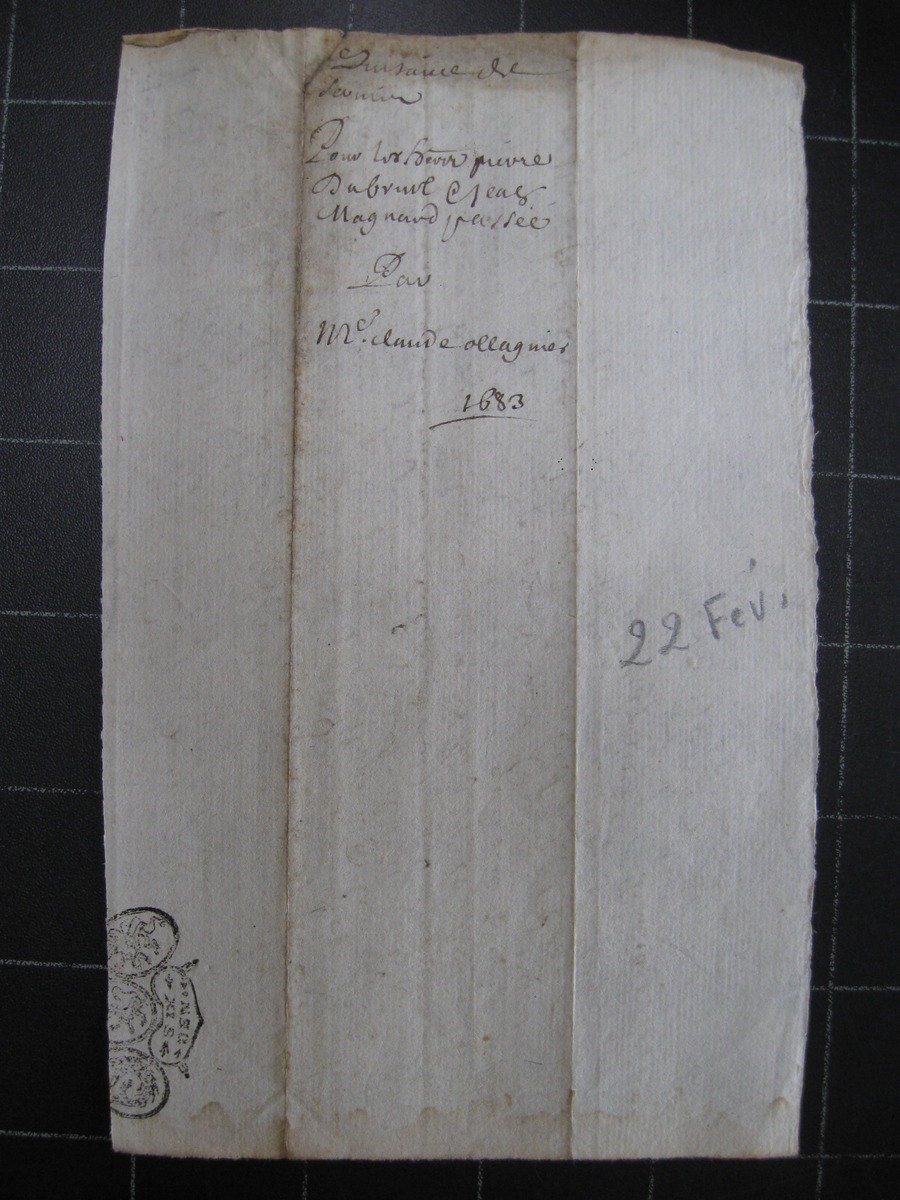 Quitance de
Pour les hers pierre
Dubreul & Jean
Magnard passée
Par
Me. claude ollagnier
1683
22 Fév.